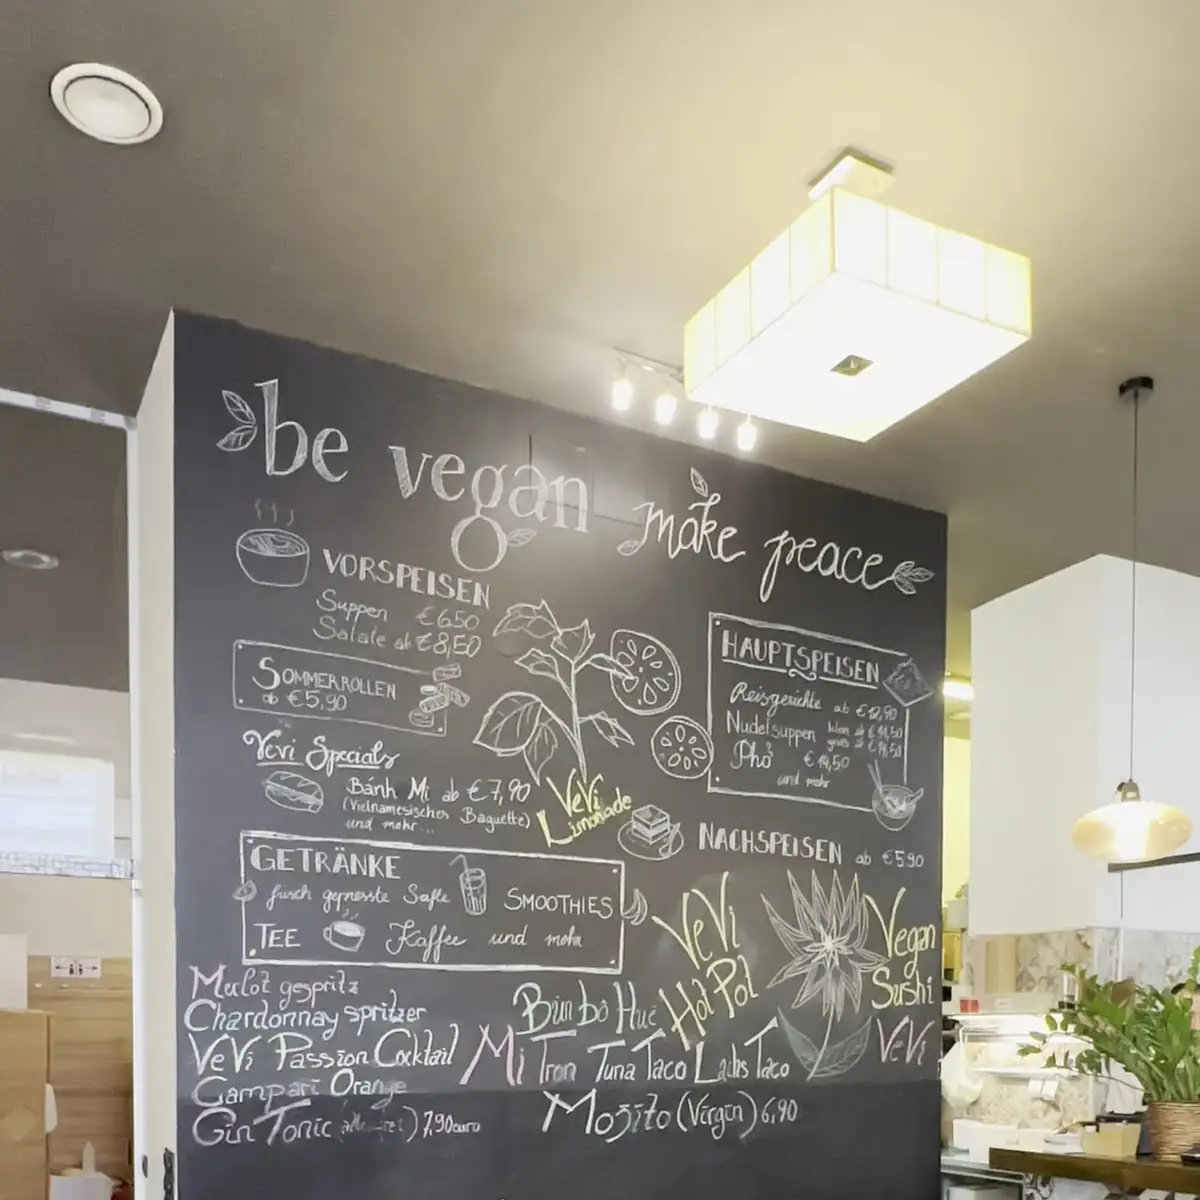 be vegan make peace
VORSPEISEN
Suppen €6.50
Salate ab €8,50
SOMMERROLLEN
ab €5,90
VeVi Specials
Bánh Mì ab €7,90
(Vietnamesisches Baguette)
und mehr...
VeVi
Limonade
HAUPTSPEISEN
Reisgerichte ab €12,90
Nudelsuppen
Phở €14,50
und mehr
NACHSPEISEN ab €590
GETRÄNKE
frisch gepresste Säfte SMOOTHIES
TEE Kaffee und mehr
VeVi
Hot Pot
Vegan
Sushi
VeVi
Merlot gespritz
Chardonnay spritzer
VeVi Passion Cocktail
Campari Orange
Gin Tonic 7,90euro
Bún bò Huế
Mì Trộn Tuna Taco Lachs Taco
Mojito (Virgin) 6,90